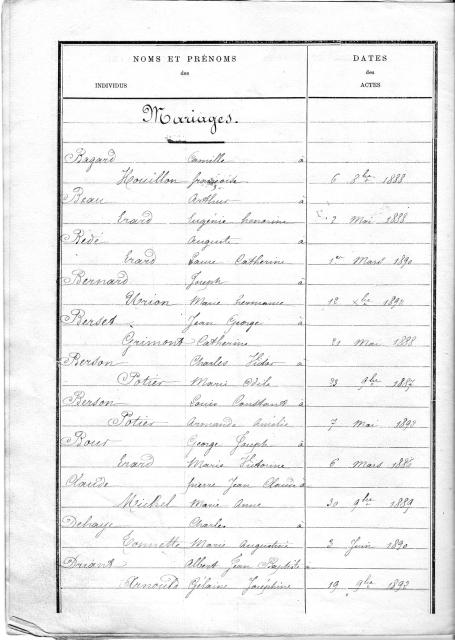 NOMS ET PRÉNOMS DATES
des des
INDIVIDUS ACTES
Mariages.
Bagard Camille à
Houillon françoise 6 8bre 1888
Beau Arthur à
Erard Eugénie honorine 2 Mai 1888
Bédé Auguste à
Erard Catherine 1er Mars 1890
Bernard Joseph à
Urion Marie hermance 12 Xbre
Berset Jean George à
Grimont Catherine 21 Mai 1888
Berson Charles Victor à
Potier Marie Odile 23 9bre 1887
Berson Louis Constant à
Potier Armande Emélie 7 Mai 1892
Bour George Joseph à
Erard Marie Victorine 6 Mars 1886
Claude Pierre Jean Claude à
Michel Marie Anne 30 9bre 1889
Dehaye Charles à
Tonnette Marie Augustine 3 Juin 1890
Driant Albert Jean Baptiste à
Arnould Gélaine Joséphine 19 9bre 1892